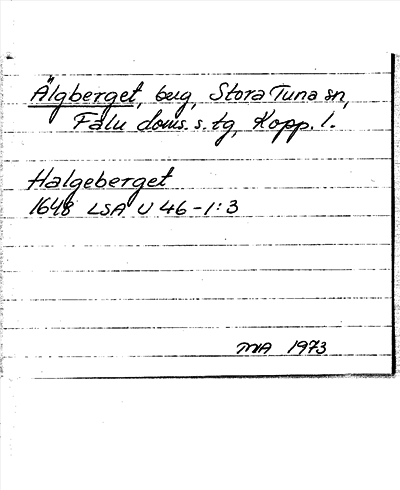 Älgberget, bug, Stora Tuna sn,
Falu doms. s. tg, Kopp. l.
Halgeberget
1648 LSA U 46-1:3
MA 1973